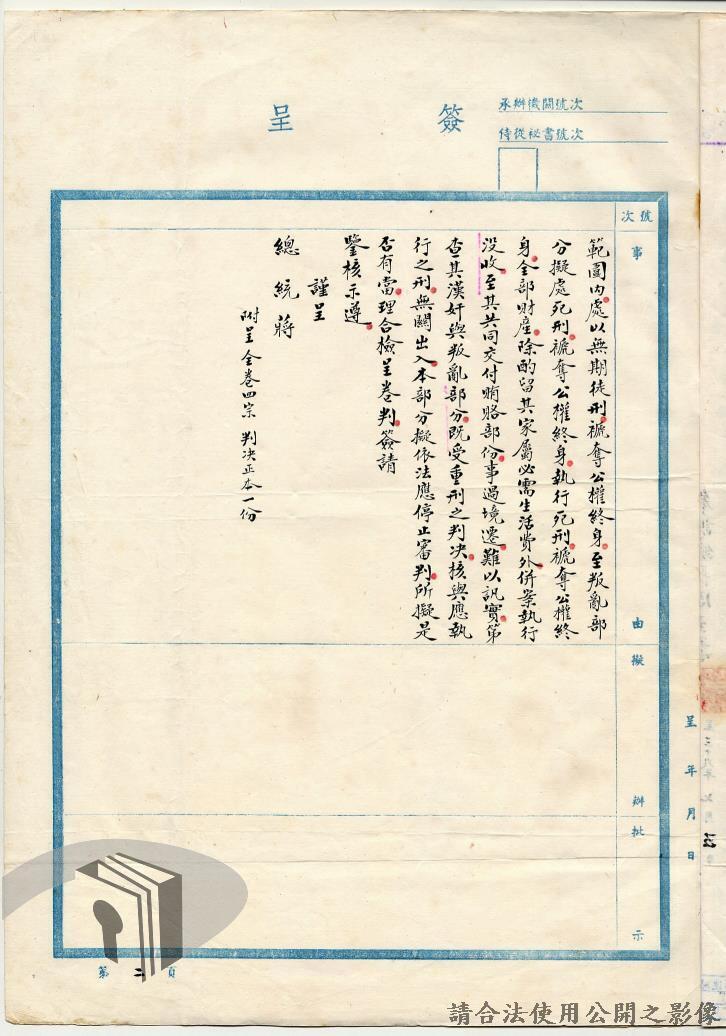 簽呈
承辦機關號次
侍從秘書號次
號次
事由
擬辦
批示
範圍內處以無期徒刑褫奪公權終身至叛亂部
分擬處死刑褫奪公權終身執行死刑褫奪公權終
身全部財產除酌留其家屬必需生活費外併案執行
沒收至其共同交付賄賂部份事過境遷難以訊實第
查其漢奸與叛亂部分既受重刑之判决核與應執
行之刑無關出入本部分擬依法應停止審判所擬是
否有當理合檢呈卷判簽請
鑒核示遵
謹呈
總統蔣
附呈全卷四宗 判决正本一份
呈 年 月 日
第二頁
請合法使用公開之影像